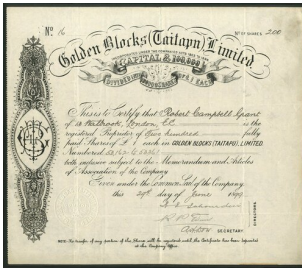 No. 16
No. OF SHARES 200
Golden Blocks (Taitapu) Limited.
INCORPORATED UNDER THE COMPANIES ACTS 1862 TO
CAPITAL £100,000
DIVIDED INTO SHARES OF £1 EACH
This is to Certify that Robert Campbell Grant
of Walbrook, London E.C. is the
registered Proprietor of Two hundred fully
paid Shares of £1 each in GOLDEN BLOCKS (TAITAPU), LIMITED.
Numbered
both inclusive subject to the Memorandum and Articles
of Association of the Company
Given under the Common Seal of the Company
this 29th day of June 1897
DIRECTORS.
SECRETARY
NOTE: No transfer of any portion of the Shares will be registered until the Certificate has been deposited
at the Company's Office.